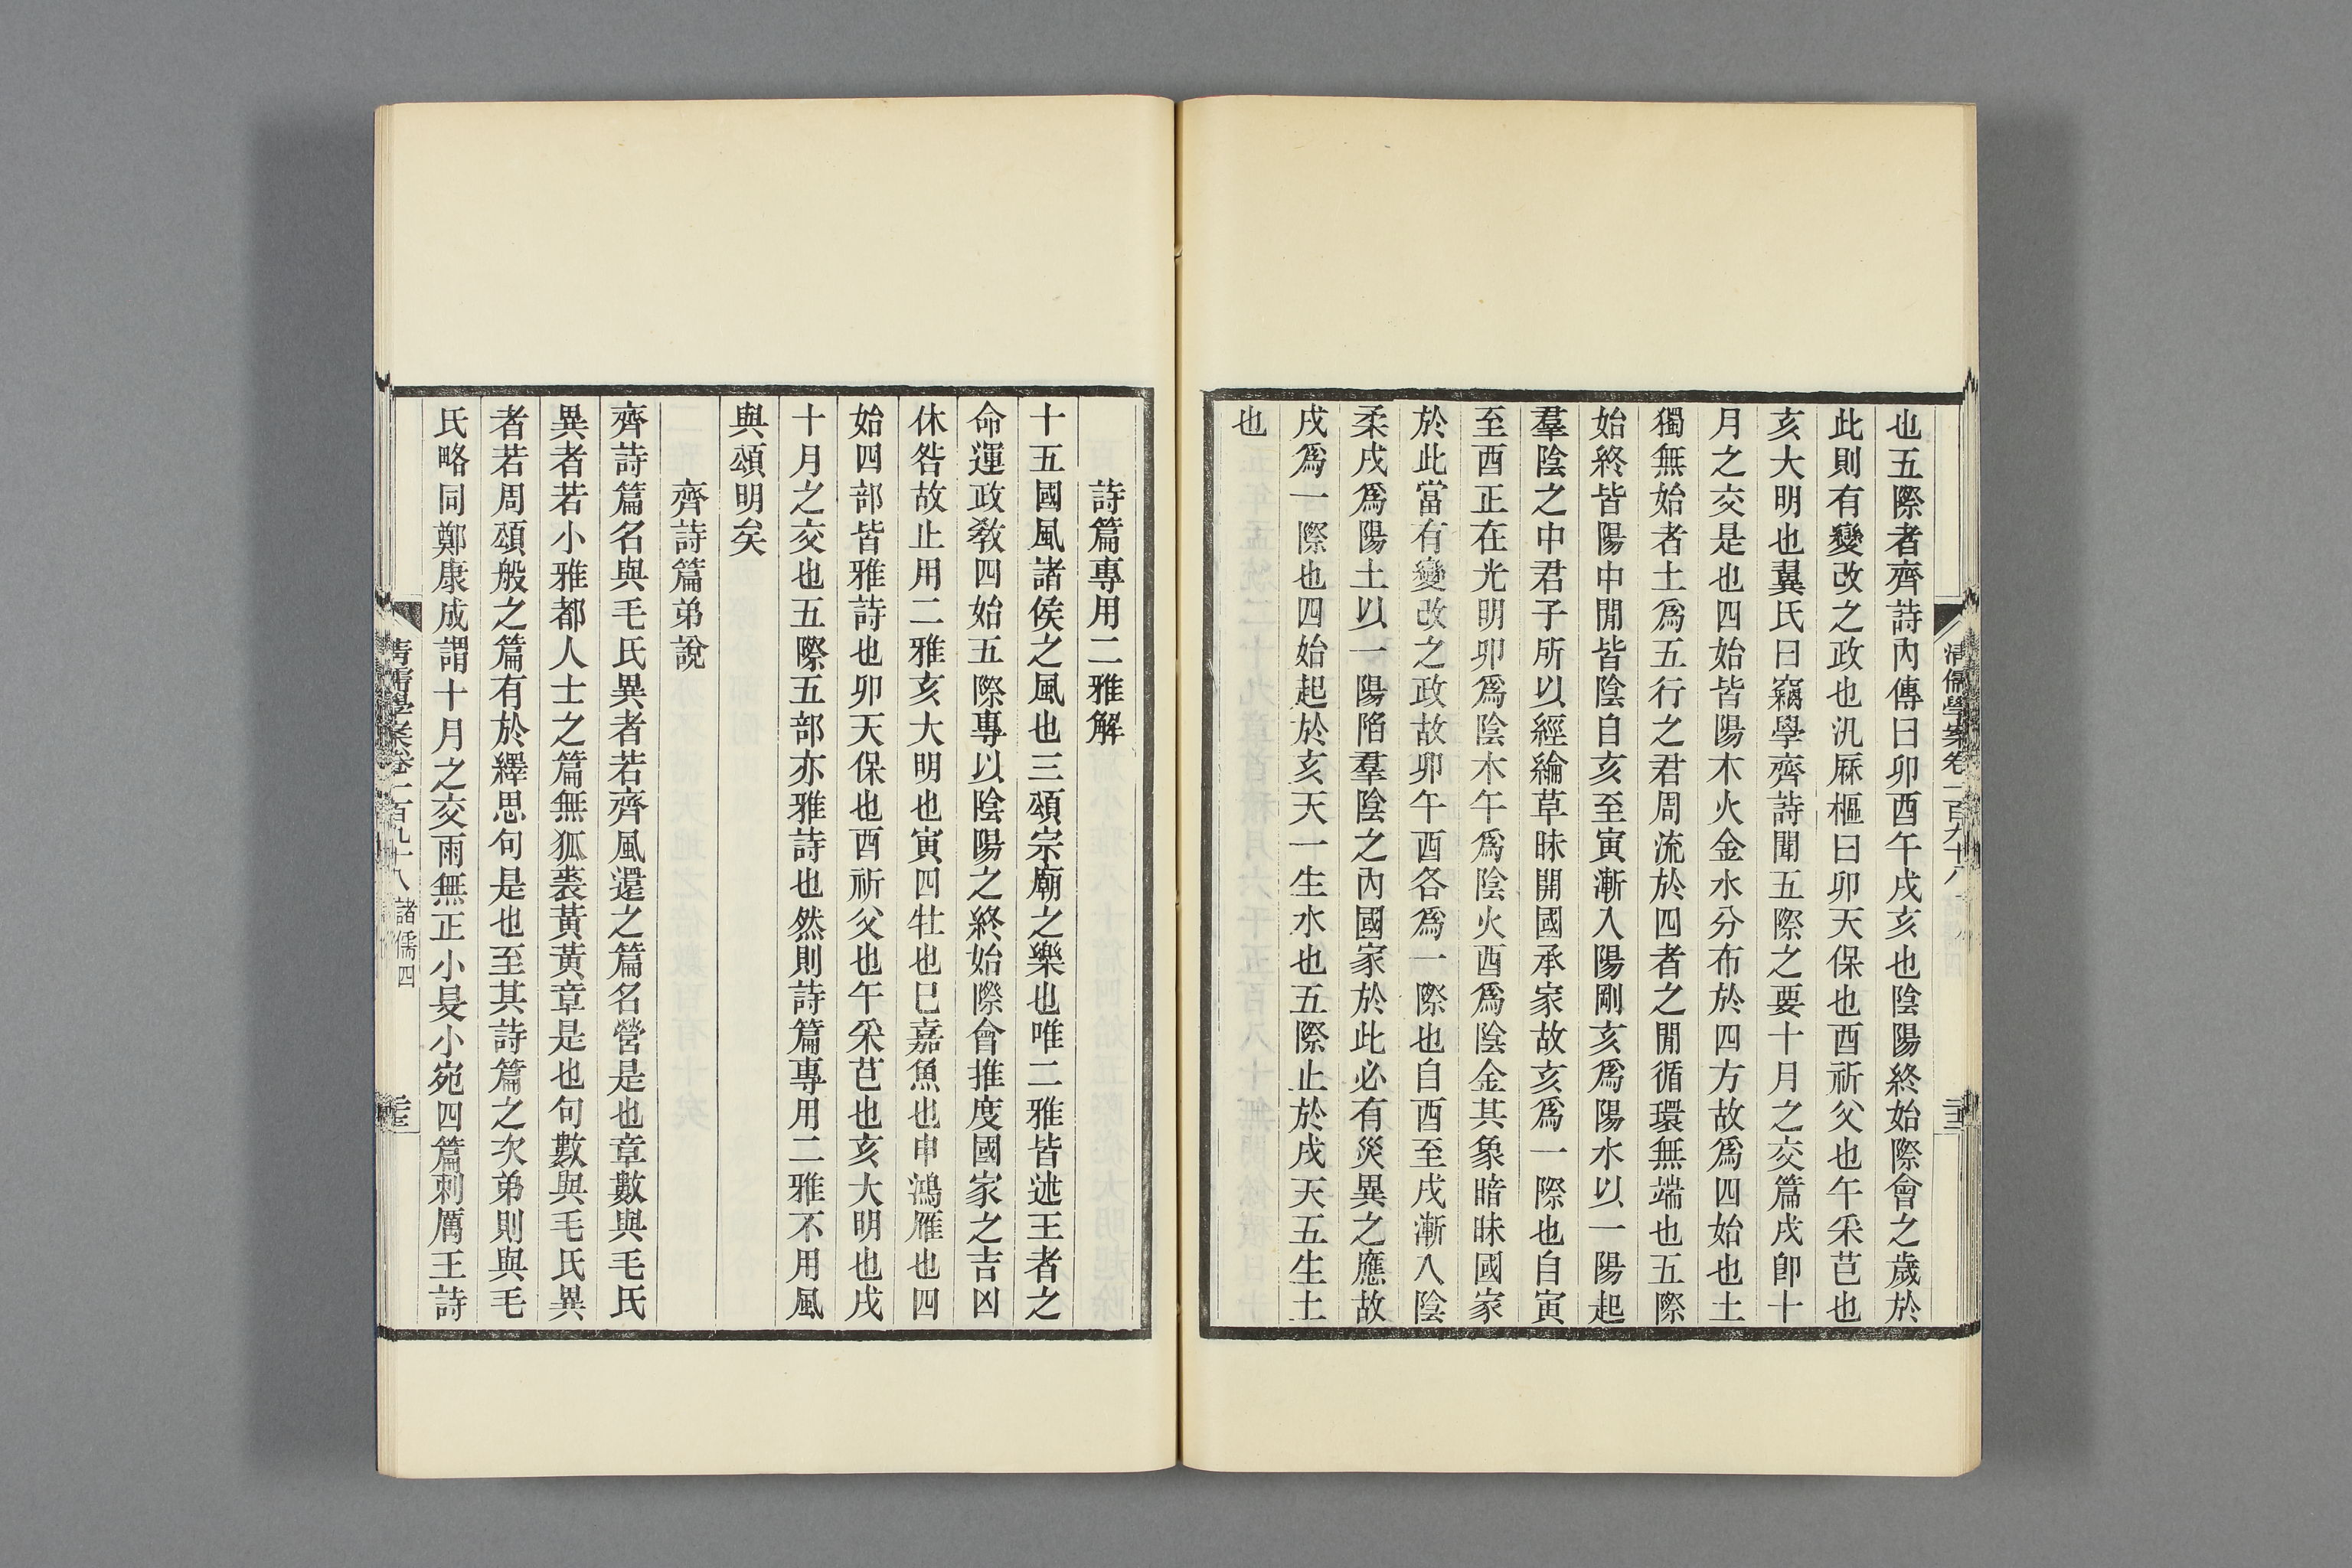 也五際者齊詩內傳曰卯酉午戌亥也陰陽終始際會之歲於
此則有變改之政也氾厤樞曰卯天保也酉祈父也午采芑也
亥大明也翼氏曰竊學齊詩聞五際之要十月之交篇戌卽十
月之交是也四始皆陽木火金水分布於四方故爲四始也土
獨無始者土爲五行之君周流於四者之閒循環無端也五際
始終皆陽中閒皆陰自亥至寅漸入陽剛亥爲陽水以一陽起
羣陰之中君子所以經綸草昧開國承家故亥爲一際也自寅
至酉正在光明卯爲陰木午爲陰火酉爲陰金其象暗昧國家
於此當有變改之政故卯午酉各爲一際也自酉至戌漸入陰
柔戌爲陽土以一陽陷羣陰之內國家於此必有災異之應故
戌爲一際也四始起於亥天一生水也五際止於戌天五生土
也
清儒學案卷一百九十八
詩篇專用二雅解
十五國風諸侯之風也三頌宗廟之樂也唯二雅皆述王者之
命運政敎四始五際專以陰陽之終始際會推度國家之吉凶
休咎故止用二雅亥大明也寅四牡也巳嘉魚也申鴻雁也四
始四部皆雅詩也卯天保也酉祈父也午采芑也亥大明也戌
十月之交也五際五部亦雅詩也然則詩篇專用二雅不用風
與頌明矣
齊詩篇弟說
齊詩篇名與毛氏異者若齊風還之篇名營是也章數與毛氏
異者若小雅都人士之篇無狐裘黃黃章是也句數與毛氏異
者若周頌般之篇有於繹思句是也至其詩篇之次弟則與毛
氏略同鄭康成謂十月之交雨無正小旻小宛四篇刺厲王詩
清儒學案卷一百九十八 諸儒四